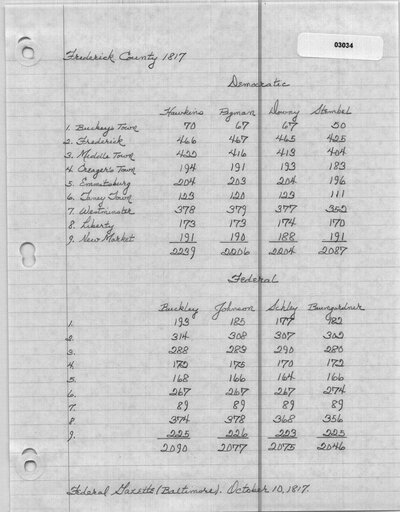 03034
Frederick County 1817
Democratic
Hawkins Pigman Downy Stembel
1. Buckeys Town 70 67 67 50
2. Frederick 466 467 465 425
3. Middle Town 416 413 404
4. Creager's Town 194 191 193 183
5. Emmitsburg 204 203 204 196
6. Taney Town 123 120 123 111
7. Westminster 378 379 377 352
8. Liberty 173 173 174 170
9. New Market 191 190 188 191
2239 2206 2204 2087
Federal
Buckley Johnson Schley Baumgardner
1. 193 185 177 182
2. 314 308 307 302
3. 288 283 290 280
4. 172 175 170 172
5. 168 166 164 166
6. 267 267 267 274
7. 89 89 89 89
8 374 378 368 356
9. 225 226 223 225
2090 2077 2075 2046
Federal Gazette (Baltimore). October 10, 1817.